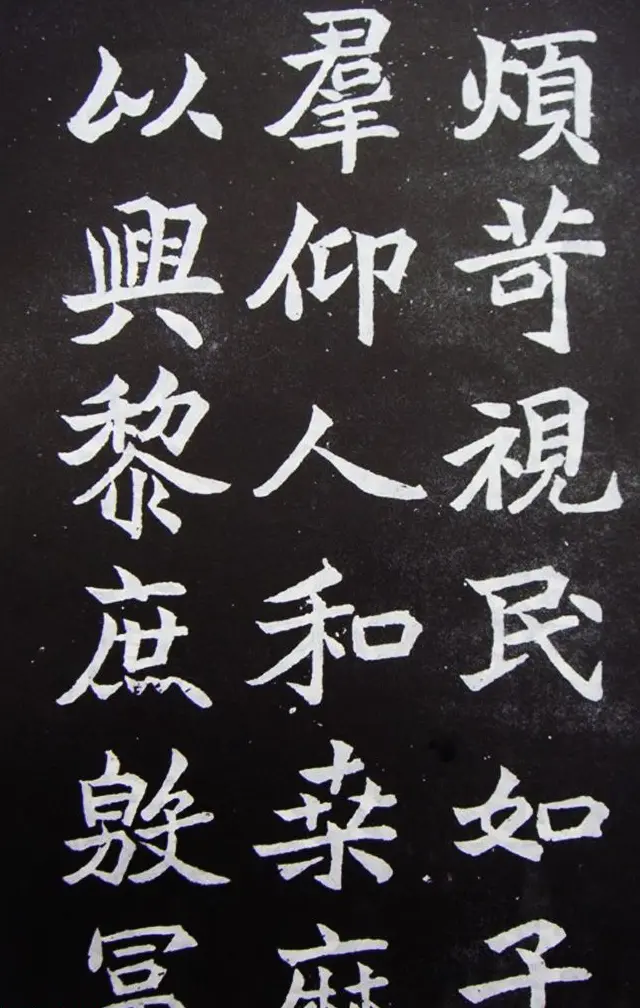 煩苛視民如子
羣仰人和桒麻
以興黎庶殷冨